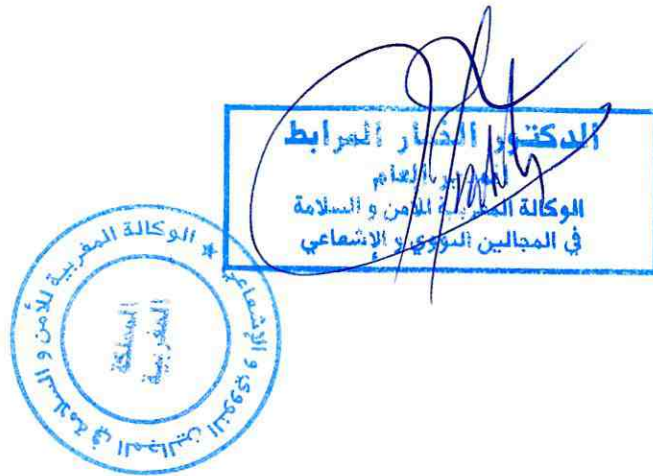 الدكتور الخمار المرابط
المدير العام
الوكالة المغربية للأمن و السلامة
في المجالين النووي و الإشعاعي
★ الوكالة المغربية للأمن و السلامة في المجالين النووي و الإشعاعي
المملكة
المغربية